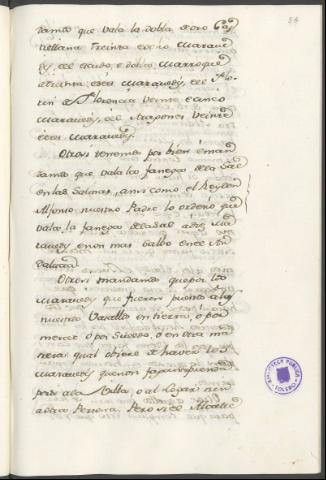 84
damos que vala la dobla de oro Cas
tellana treinta e ocho marave
dis, el escudo, e dobla marroqui
e treinta e tres maravedis, el Flo
rin de Florencia veinte e cinco
maravedis, el Aragones veinte
e tres maravedis.
Otrosi tenemos por bien e man
damos que vala la fanega de la Sal
en las Salinas, ansi como el Rey Don
Alfonso nuestro Padre lo ordenó que
vala la fanega de la sal a diez ma
ravedis e non mas salvo en el An
dalucia.
Otrosi mandamos que por los
maravedis que fueren puestos a los
nuestros Vasallos en tierra, o por
merced o por Sueldo o en otra ma
nera qual obiere de haver los
maravedis que non faga
por a la Villa, o al Logar nin
a otra Persona. Pero si el Alcalle
BIBLIOTECA PUBLICA
TOLEDO